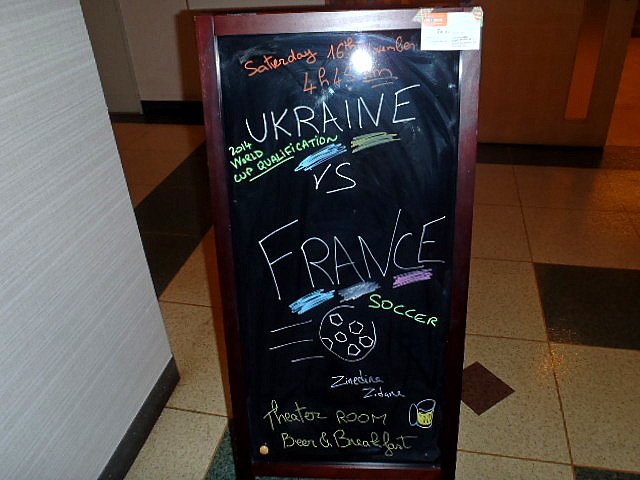 Saturday 16th November
4h45 am
UKRAINE
2014
WORLD
CUP QUALIFICATION
VS
FRANCE
SOCCER
Zinedine
Zidane
Theater ROOM
Beer & Breakfast